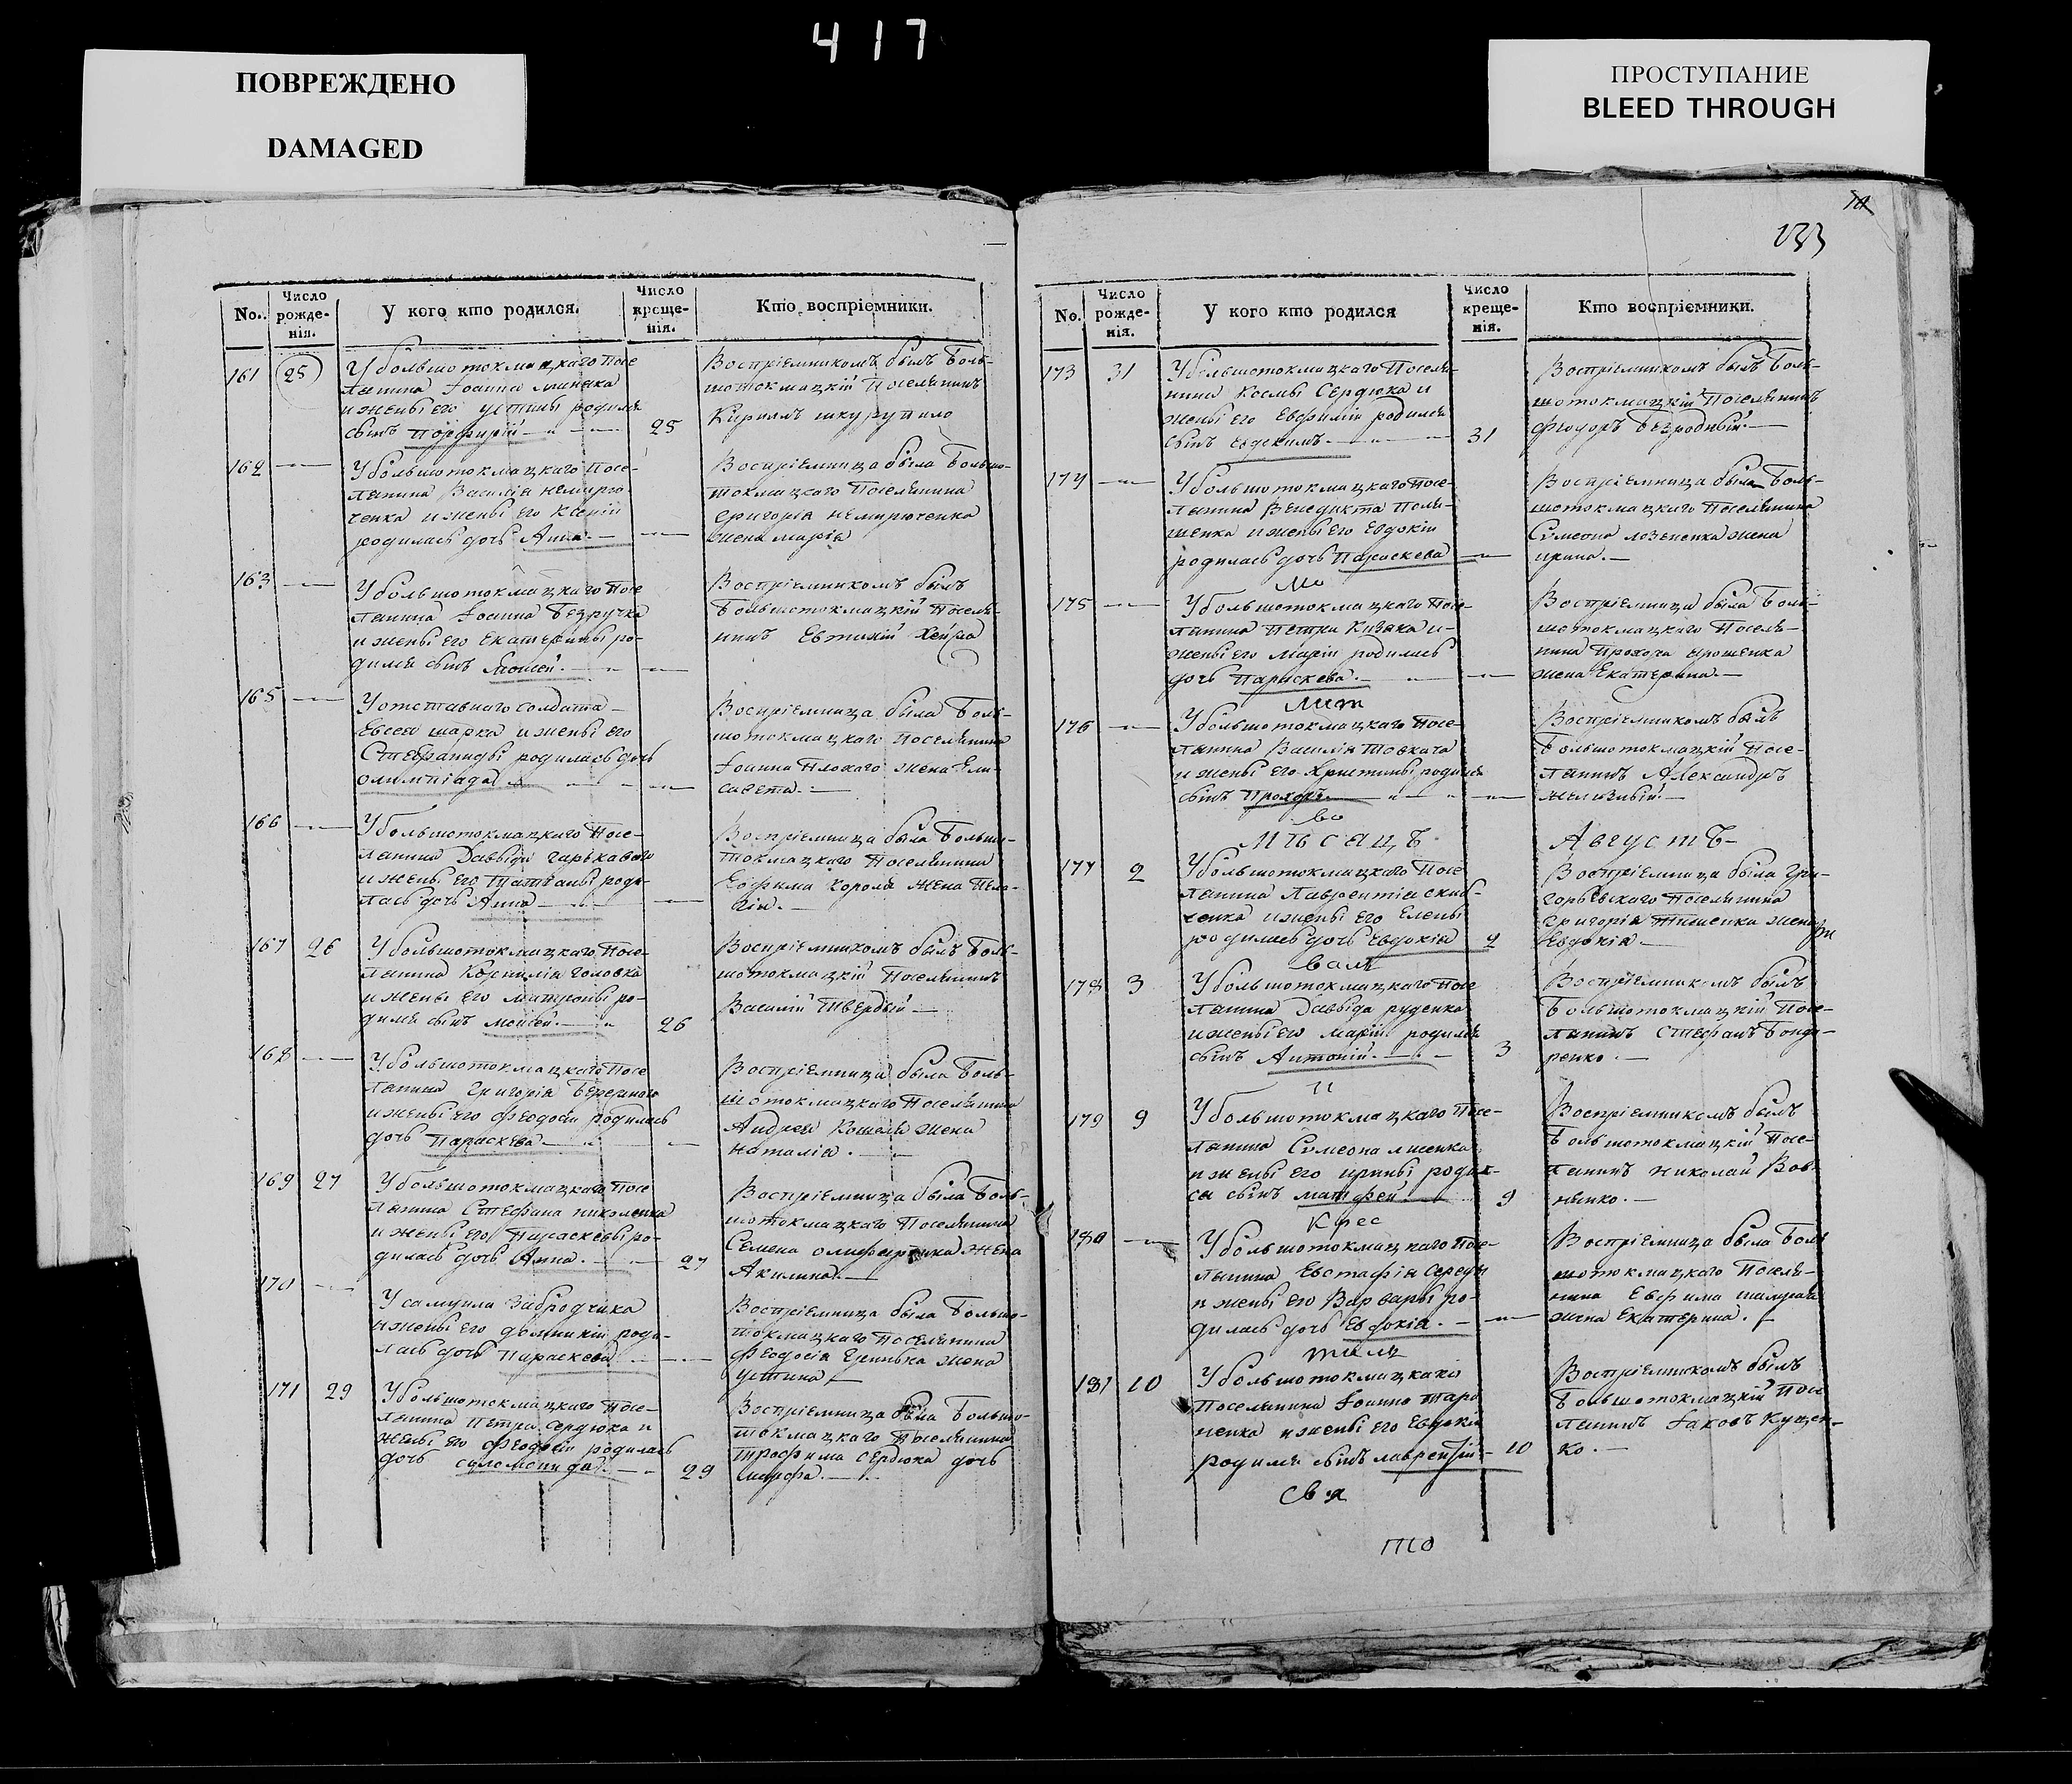 417
ПОВРЕЖДЕНО
DAMAGED
ПРОСТУПАНИЕ
BLEED THROUGH
No.
Число рожде-нія.
У кого кто родился.
Число креще-нія.
Кто воспріемники.
161
25
У большотокмацкаго Посе
лянина Іоанна
и жены его Устины родился
сынъ Порфирій
25
Воспріемникомъ былъ Боль-
шотокмацкій Поселянинъ
Кириллъ Шкурупило
162
У большотокмацкаго Посе-
лянина Василія Немирю
ченка и жены его Ксеніи
родилась дочь Анна.
Воспріемница была Больше-
токмацкаго Поселянина
Григорія Немирюченка
жена Марія
163
У большотокмацкаго Посе
лянина Іоанна Безручка
и жены его Екатерины ро-
дился сынъ
Воспріемникомъ былъ
Большотокмацкій Поселя-
нинъ Евтихій
165
У отставнаго солдата
Евсея Шарка и жены его
Стефаниды родилась дочь
Олимпіада
Воспріемница была Боль-
шотокмацкаго Поселянина
Іоанна Плохаго жена Ели-
савета.
166
У большотокмацкаго Посе-
лянина Давыда Гарькаваго
и жены его Татіаны роди-
лась дочь Анна
Воспріемница была Больше-
токмацкаго Поселянина
Евфима Короля жена Пела-
гія.
167
26
У большотокмацкаго Посе-
лянина Корнилія Головка
и жены его Матроны ро-
дился сынъ Моисей.
26
Воспріемникомъ былъ Боль-
шотокмацкій Поселянинъ
Василій Твердый
168
У большотокмацкаго Посе
лянина Григорія
и жены его Феодосіи родилась
дочь Параскева
Воспріемница была Боль-
шотокмацкаго Поселянина
Андрея Кошеля жена
Наталія.
169
27
У большотокмацкаго Посе
лянина Стефана Николенка
и жены его Параскевы ро-
дилась дочь Анна.
27
Воспріемница была Боль-
шотокмацкаго Поселянина
Семена жена
Акилина.
170
У Самуила Забродчика
и жены его Домникіи роди-
лась дочь Параскева
Воспріемница была Больше-
токмацкаго Поселянина
Феодосія Гринька жена
Устина
171
29
У большотокмацкаго Посе-
лянина Петра Сердюка и
жены его Феодосіи родилась
дочь Соломонида.
29
Воспріемница была Больше-
токмацкаго Поселянина
Трофима Сердюка дочь
Марфа.
133
No.
Число рожде-нія.
У кого кто родился
Число креще-нія.
Кто воспріемники.
173
31
У большотокмацкаго Поселя-
нина Космы Сердюка и
жены его Евфиміи родился
сынъ Евдокимъ.
31
Воспріемникомъ былъ Боль-
шотокмацкій Поселянинъ
Феодоръ Безродный.
174
У большотокмацкаго Посе-
лянина Венедикта Поли-
щенка и жены его Евдокіи
родилась дочь Параскева
Воспріемница была Боль-
шотокмацкаго Поселянина
Сѵмеона Лозенка жена
Ирина.
Мо
175
У большотокмацкаго Посе-
лянина Петра Кизяка и
жены его Маріи родилась
дочь Параскева.
Воспріемница была Боль-
шотокмацкаго Поселя-
нина Прохора Ярошенка
жена Екатерина.
лит
176
У большотокмацкаго Посе-
лянина Василія Товкача
и жены его Христины родился
сынъ Прохоръ
Воспріемникомъ былъ
Большотокмацкій Посе-
лянинъ Александръ
Железный.
во
Мѣсяцъ
Августъ
177
2
У большотокмацкаго Посе
лянина Лаврентія
и жены его Елены
родилась дочь Евдокія
2
Воспріемница была Гри-
горьевскаго Поселянина
Григорія Тищенка жена
Евдокія.
валъ
178
3
У большотокмацкаго Посе
лянина Давыда Руденка
и жены его Маріи родился
сынъ Антоній.
3
Воспріемникомъ былъ
Большотокмацкій Посе-
лянинъ Стефанъ Бонда-
ренко.
и
179
9
У большотокмацкаго Посе-
лянина Сѵмеона Лисенка
и жены его Ирины родил-
ся сынъ Матфей
9
Воспріемникомъ былъ
Большотокмацкій Посе-
лянинъ Николай Вов-
ненко.
Крес
180
У большотокмацкаго Посе-
лянина Евстафія Середы
и жены его Варвары ро-
дилась дочь Евдокія.
Воспріемница была Боль
шотокмацкаго Поселя-
нина Евфима
жена Екатерина.
тилъ
181
10
У большотокмацкаго
Поселянина Іоанна Тара
ненка и жены его Евдокіи
родился сынъ Лаврентій
10
Воспріемникомъ былъ
Большотокмацкій Посе
лянинъ Іаковъ Куцен-
ко.
Свя